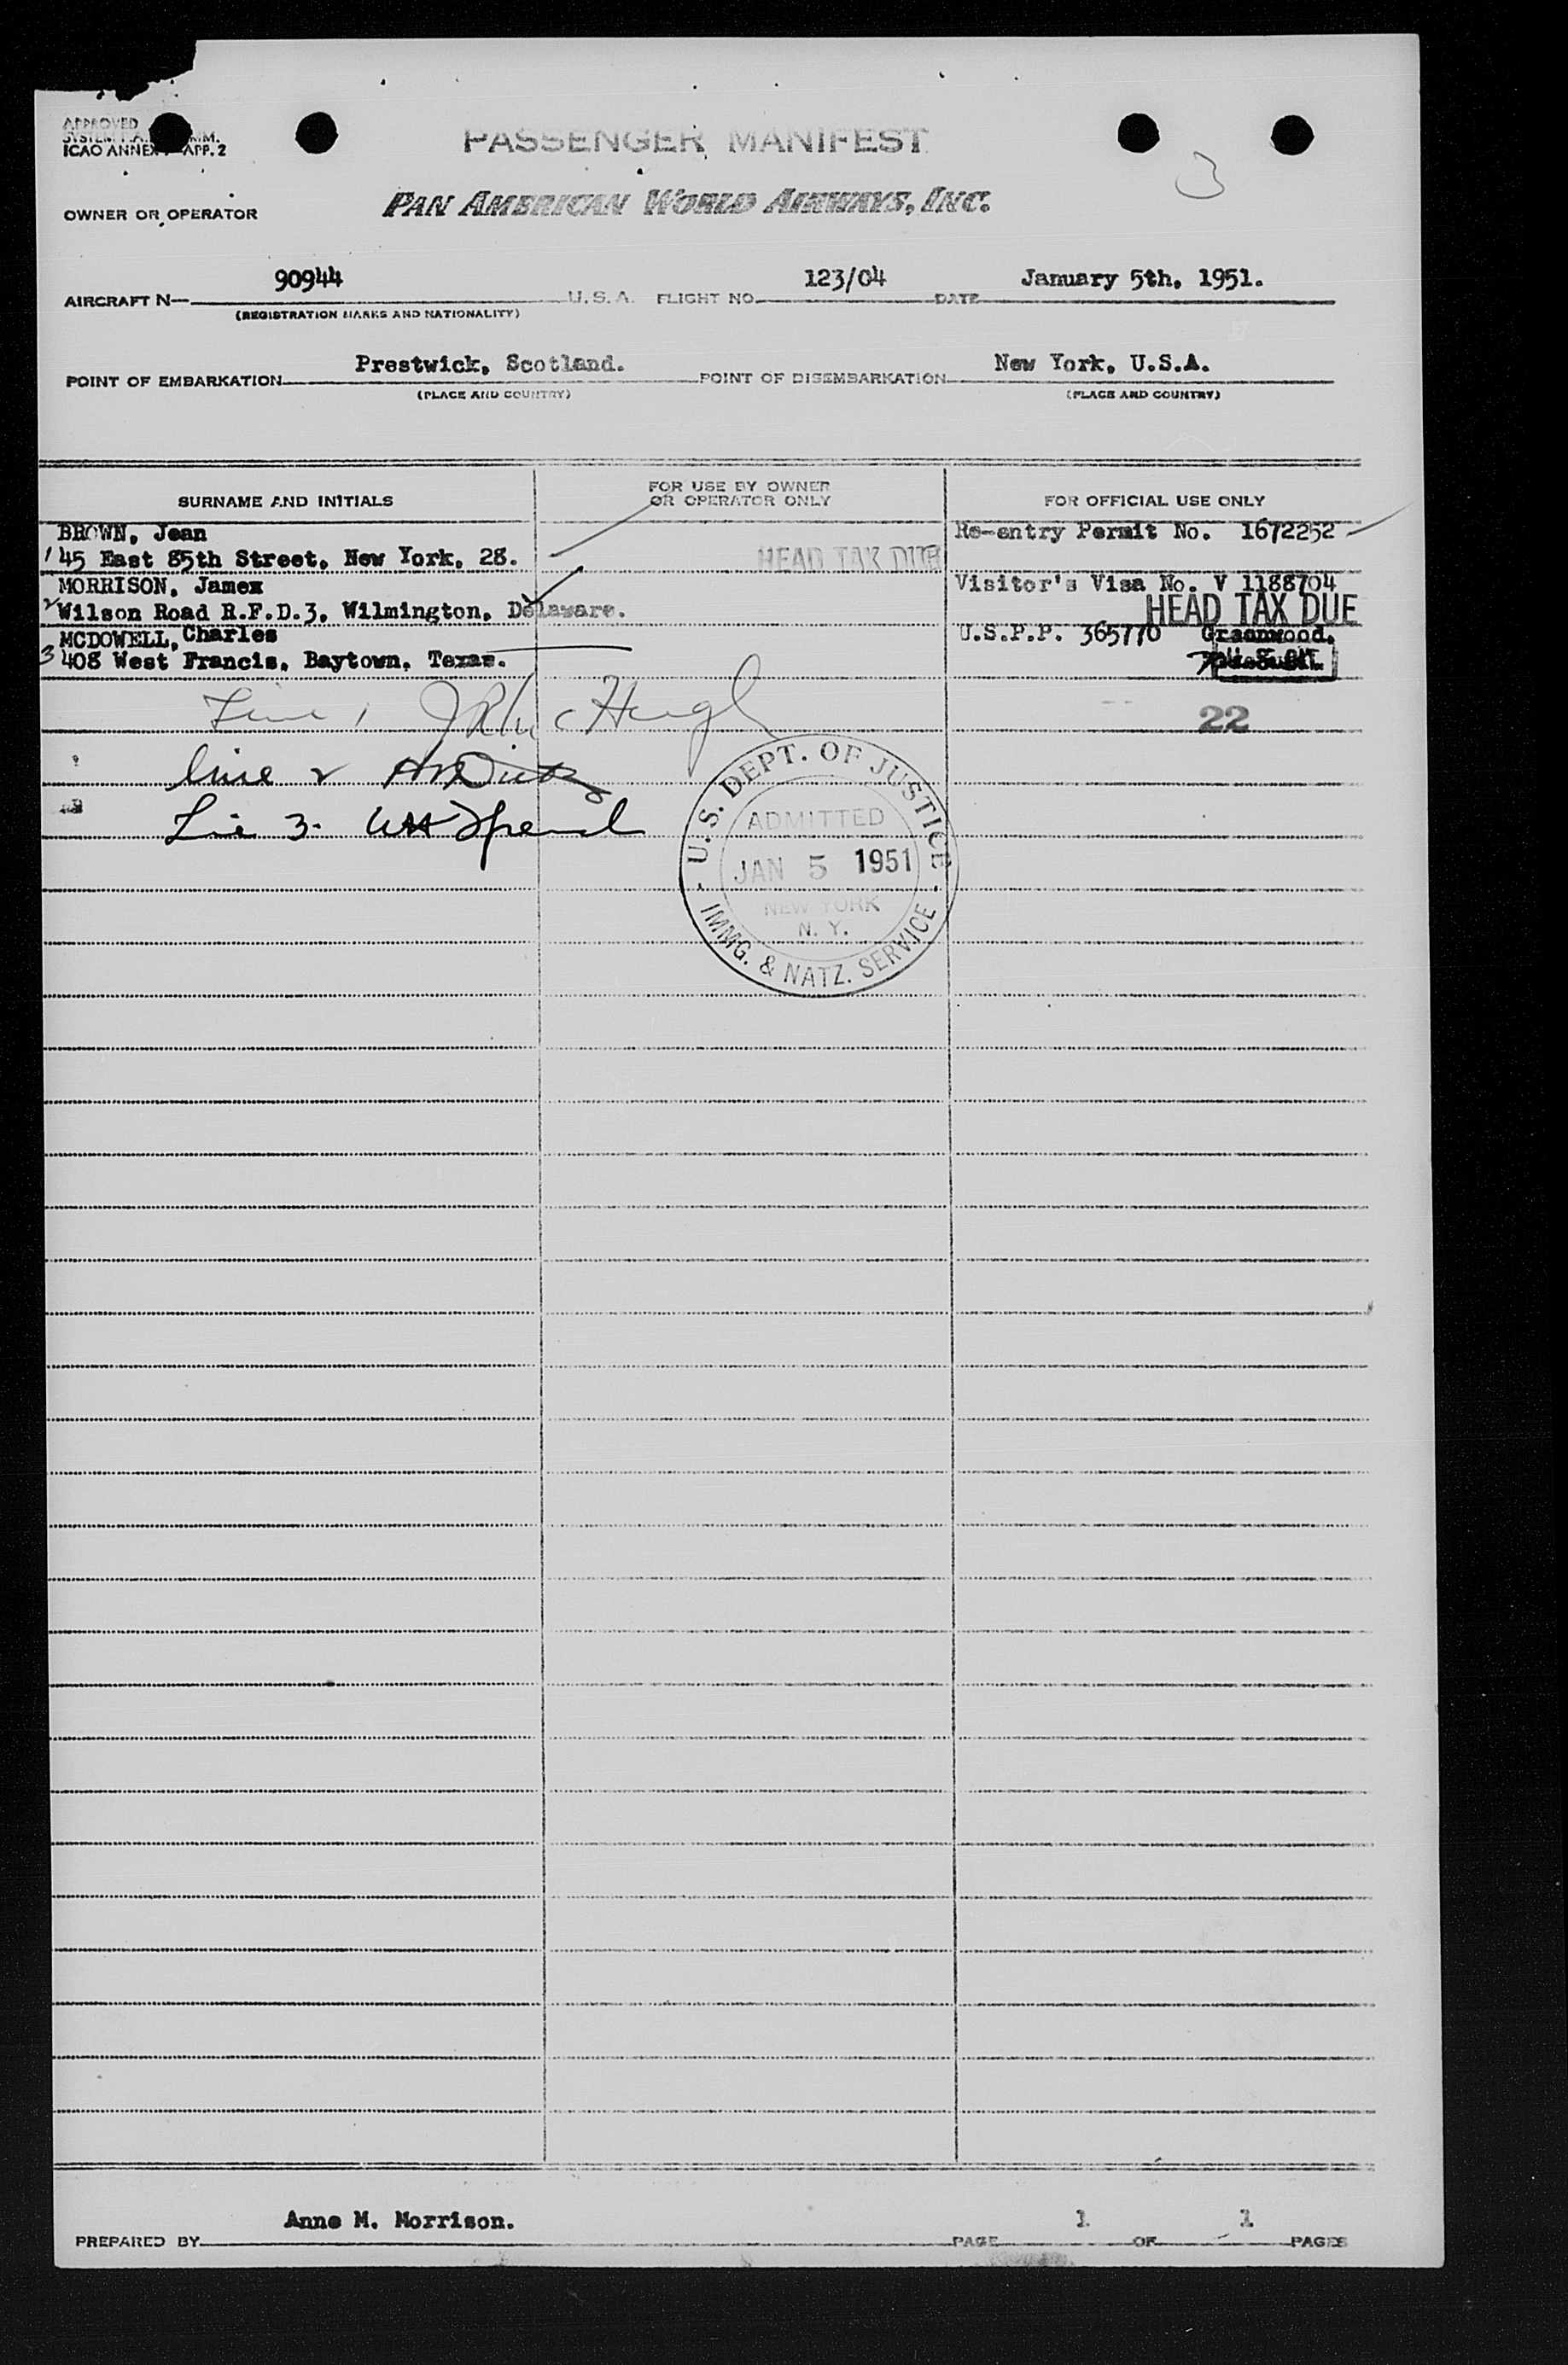 APPROVED
ICAO ANNEX APP. 2
PASSENGER MANIFEST
3
OWNER OR OPERATOR PAN AMERICAN WORLD AIRWAYS, INC.
AIRCRAFT N— 90944 U.S.A. FLIGHT NO. 123/04 DATE January 5th, 1951.
(REGISTRATION MARKS AND NATIONALITY)
POINT OF EMBARKATION Prestwick, Scotland. POINT OF DISEMBARKATION New York, U.S.A.
(PLACE AND COUNTRY) (PLACE AND COUNTRY)
SURNAME AND INITIALS FOR USE BY OWNER OR OPERATOR ONLY FOR OFFICIAL USE ONLY
BROWN, Jean Re-entry Permit No. 1672252
1 45 East 85th Street, New York, 28. HEAD TAX DUE
MORRISON, James Visitor's Visa No. V 1188704
2 Wilson Road R.F.D.3, Wilmington, Delaware. HEAD TAX DUE
MCDOWELL, Charles U.S.P.P. 365770 Greenwood,
3 408 West Francis, Baytown, Texas.
Line 1 22
Line 2
Line 3.
U.S. DEPT. OF JUSTICE
ADMITTED
JAN 5 1951
NEW YORK
N. Y.
IMMG. & NATZ. SERVICE
PREPARED BY Anne M. Morrison. PAGE 1 OF 1 PAGES